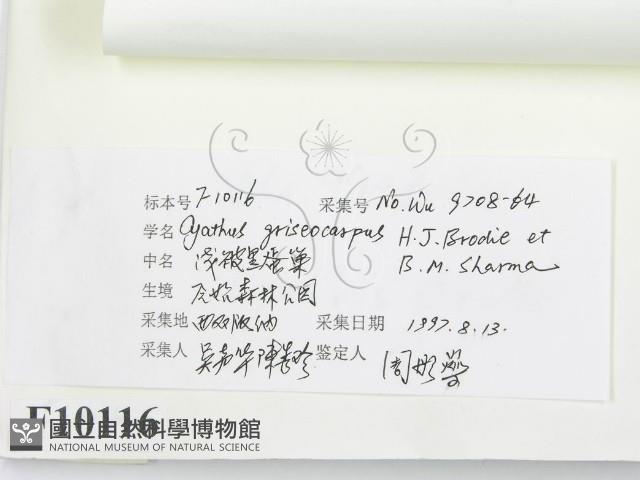 标本号 F10116 采集号 No. Wu 9708-64
学名 Cyathus griseocarpus H.J. Brodie et
中名 浅被黑蛋巢 B.M. Sharma
生境 森林公园
采集地 西双版纳 采集日期 1997.8.13.
采集人 鉴定人 周彤燊
F10116
國立自然科學博物館
NATIONAL MUSEUM OF NATURAL SCIENCE